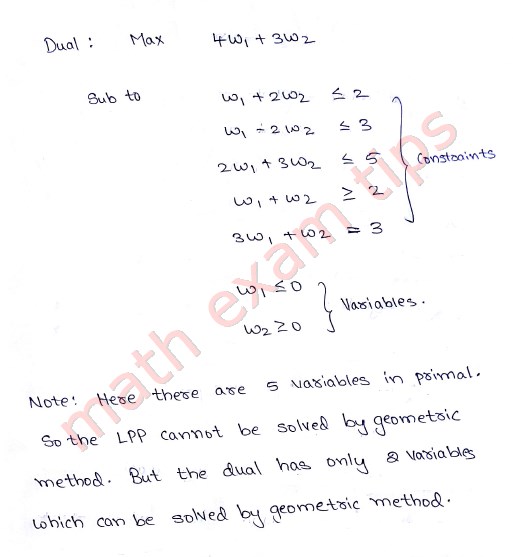 Dual : Max 4w₁ + 3w₂
Sub to w₁ + 2w₂ ≤ 2
w₁ - 2w₂ ≤ 3
2w₁ + 3w₂ ≤ 5
w₁ + w₂ ≥ 2
3w₁ + w₂ = 3
Constraints
w₁ ≤ 0
w₂ ≥ 0
Variables.
Note: Here there are 5 variables in primal.
So the LPP cannot be solved by geometric
method. But the dual has only 2 variables
which can be solved by geometric method.
math exam tips